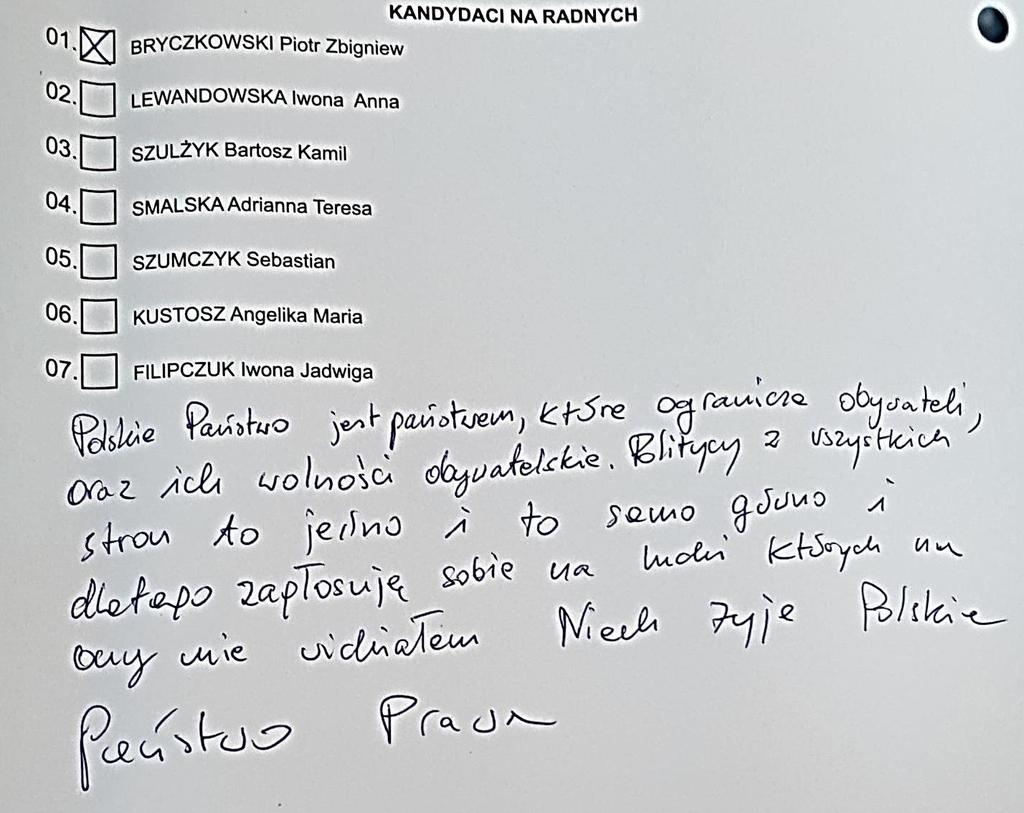 KANDYDACI NA RADNYCH
01. BRYCZKOWSKI Piotr Zbigniew
02. LEWANDOWSKA Iwona Anna
03. SZULŻYK Bartosz Kamil
04. SMALSKA Adrianna Teresa
05. SZUMCZYK Sebastian
06. KUSTOSZ Angelika Maria
07. FILIPCZUK Iwona Jadwiga
Polskie Państwo jest państwem, które ogranicza obywateli,
oraz ich wolności obywatelskie. Politycy z wszystkich
stron to jedno i to samo gówno i
dlatego zapłosuję sobie na ludzi których na
oczy nie widziałem Niech żyje Polskie
Państwo Prawa